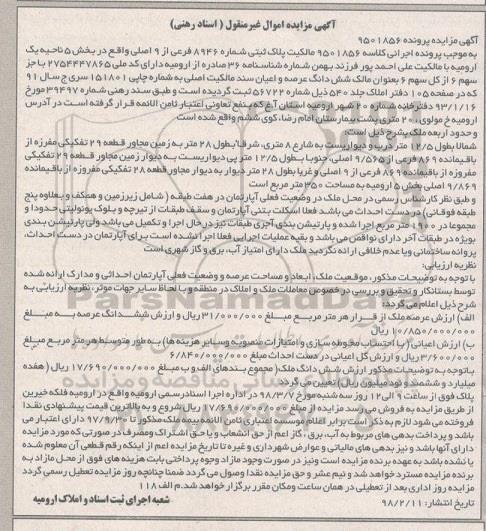 آگهی مزایده اموال غیرمنقول ( اسناد رهنی)
آگهی مزایده پرونده ۹۵۰۱۸۵۶
به موجب پرونده اجرائی کلاسه ۹۵۰۱۸۵۶ مالکیت پلاک ثبتی شماره ۸۹۴۶ فرعی از ۹ اصلی واقع در بخش ۵ ناحیه یک
ارومیه با مالکیت علی احمد پور فرزند بهمن شماره شناسنامه ۳۶ صادره از ارومیه دارای کد ملی ۲۷۵۴۴۴۷۸۶۵ با جز
سهم ۶ از کل سهم ۶ بعنوان مالک شش دانگ عرصه و اعیان سند مالکیت اصلی به شماره چاپی ۱۵۱۸۰۱ سری ج سال ۹۱
که در صفحه ۱۰۵ دفتر املاک جلد ۵۴۰ ذیل شماره ۵۶۷۲۲ ثبت گردیده است و طبق سند رهنی شماره ۳۹۴۹۷ مورخ
۹۳/۱/۱۶ دفترخانه شماره ۱۰۰ شهر ارومیه استان آ.غ که به نفع تعاونی اعتبار ثامن الائمه قرار گرفته است در آدرس
ارومیه خ مولوی ۲۰ متری پشت بیمارستان امام رضا، کوی ششم واقع شده است
و حدود اربعه ملک بشرح ذیل است
شمالا بطول ۱۲/۵ متر درب و دیواریست به شارع ۸ متری، شرقا بطول ۲۸ متر به زمین مجاور قطعه ۲۹ تفکیکی مفرزه از
باقیمانده ۸۶۹ فرعی از ۹/۵۶۵ اصلی، جنوبا بطول ۱۲/۵ متر پی دیواریست به دیوار زمین مجاور قطعه ۲۹ تفکیکی
مفرزه از باقیمانده ۸۶۹ فرعی از ۹ اصلی و غربا بطول ۲۸ متر دیوار به دیوار مجاور قطعه ۲۸ تفکیکی مفرزه از باقیمانده
۹/۸۶۹ اصلی بخش ۵ ارومیه به مساحت ۳۵۰ متر مربع است
و طبق نظر کارشناس رسمی در محل ملک در وضعیت فعلی آپارتمان در هفت طبقه ( شامل زیرزمین و همکف و بعلاوه پنج
طبقه فوقانی) در دست احداث می باشد فعلا اسکلت بتنی آپارتمان و سقف طبقات از تیرچه و بلوک یونولیتی حدودا و
مجموعا در ۱۹۰۰ متر مربع اجرا شده و پارتیشن بندی آجری طبقات نیز در حال اجرا و تکمیل می باشد ولی پارتیشن بندی
بویژه در طبقات آخر دارای نواقص می باشد و بقیه عملیات اجرایی فعلا اجرا نشده است برای آپارتمان در دست احداث،
پروانه ساختمانی ویا عدم خلافی ارائه نگردید ملک دارای امتیاز آب، برق و گاز شهری است
نظریه ارزیابی:
با توجه به توضیحات مذکور، موقعیت ملک، ابعاد و مساحت عرصه و وضعیت فعلی آپارتمان احداثی و مدارک ارائه شده
توسط بستانکار و تحقیق و بررسی در خصوص معاملات ملک و املاک در منطقه و با لحاظ سایر جهات موثر، نظریه ارزیابی به
شرح ذیل اعلام می گردد:
الف) ارزش عرصه ملک از قرار هر متر مربع مبلغ ۳۱/۰۰۰/۰۰۰ ریال و ارزش ششدانگ عرصه به مبلغ
۱۰/۸۵۰/۰۰۰/۰۰۰ ریال
ب) ارزش اعیانی ( با احتساب محوطه سازی و امتیازات منصوبه و سایر هزینه ها) به طور متوسط هر متر مربع مبلغ
۳/۶۰۰/۰۰۰ ریال و ارزش کل اعیانی در دست احداث مبلغ ۶/۸۴۰/۰۰۰/۰۰۰
با توجه به توضیحات مذکور ارزش شش دانگ ملک ( مجموع بندهای الف و ب مبلغ ۱۷/۶۹۰/۰۰۰/۰۰۰ ریال ( هفده
میلیارد و ششصد و نود میلیون ریال) تعیین می گردد
پلاک فوق از ساعت ۹ الی ۱۲ روز سه شنبه مورخ ۹۸/۳/۷ در اداره اجرا اسناد رسمی ارومیه واقع در ارومیه فلکه خیرین
از طریق مزایده به فروش می رسد مزایده از مبلغ ۱۷/۶۹۰/۰۰۰/۰۰۰ ریال شروع و به بالاترین قیمت پیشنهادی نقدا
فروخته می شود لازم به ذکر است برابر اعلام موسسه اعتباری ثامن الائمه بیمه ملک مذکور تا ۹۷/۹/۳۰ دارای اعتبار می
باشد و پرداخت بدهی های مربوط به آب، برق ، گاز اعم از حق انشعاب و یا حق اشتراک و مصرف در صورتی که مورد مزایده
دارای آنها باشد و نیز بدهی های مالیاتی و عوارض شهرداری و غیره تا تاریخ مزایده اعم از اینکه رقم قطعی آن معلوم شده
یا نشده باشد به عهده برنده مزایده است ونیز در صورت وجود مازاد وجوه پرداختی بابت هزینه های فوق از محل مازاد به
برنده مزایده مسترد خواهد شد و نیم عشر و حق مزایده نقدا وصول می گردد ضمنا چنانچه روز مزایده تعطیل رسمی گردد
مزایده روز اداری بعد از تعطیلی در همان ساعت ومکان مقرر برگزار خواهد شد. م الف ۱۱۸
تاریخ انتشار: ۹۸/۲/۱۱
شعبه اجرای ثبت اسناد و املاک ارومیه
ParsNamadData